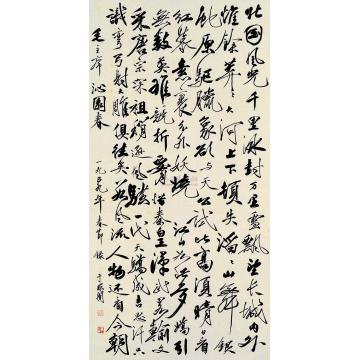 北国風光千里冰封万里雪飘望长城内外
惟餘莽莽大河上下頓失滔滔山舞銀
蛇原驱臘象欲与天公试比高須晴日看
紅裝素裹分外妖娆江山如此多嬌引
無数英雄競折腰惜秦皇漢武略输文
采唐宗宋祖稍逊风骚一代天骄成吉思汗只
識弯弓射大雕俱往矣数风流人物还看今朝
毛主席沁園春 一九五九年春節録